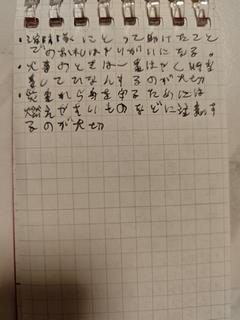 ・消防隊にとって助けたこと
でのお礼はやりがいになる。
・火事のときは一番はやく噴を
着してひなんするのが大切
・災害から身を守るためには
燃えやすいものなどに注意す
るのが大切